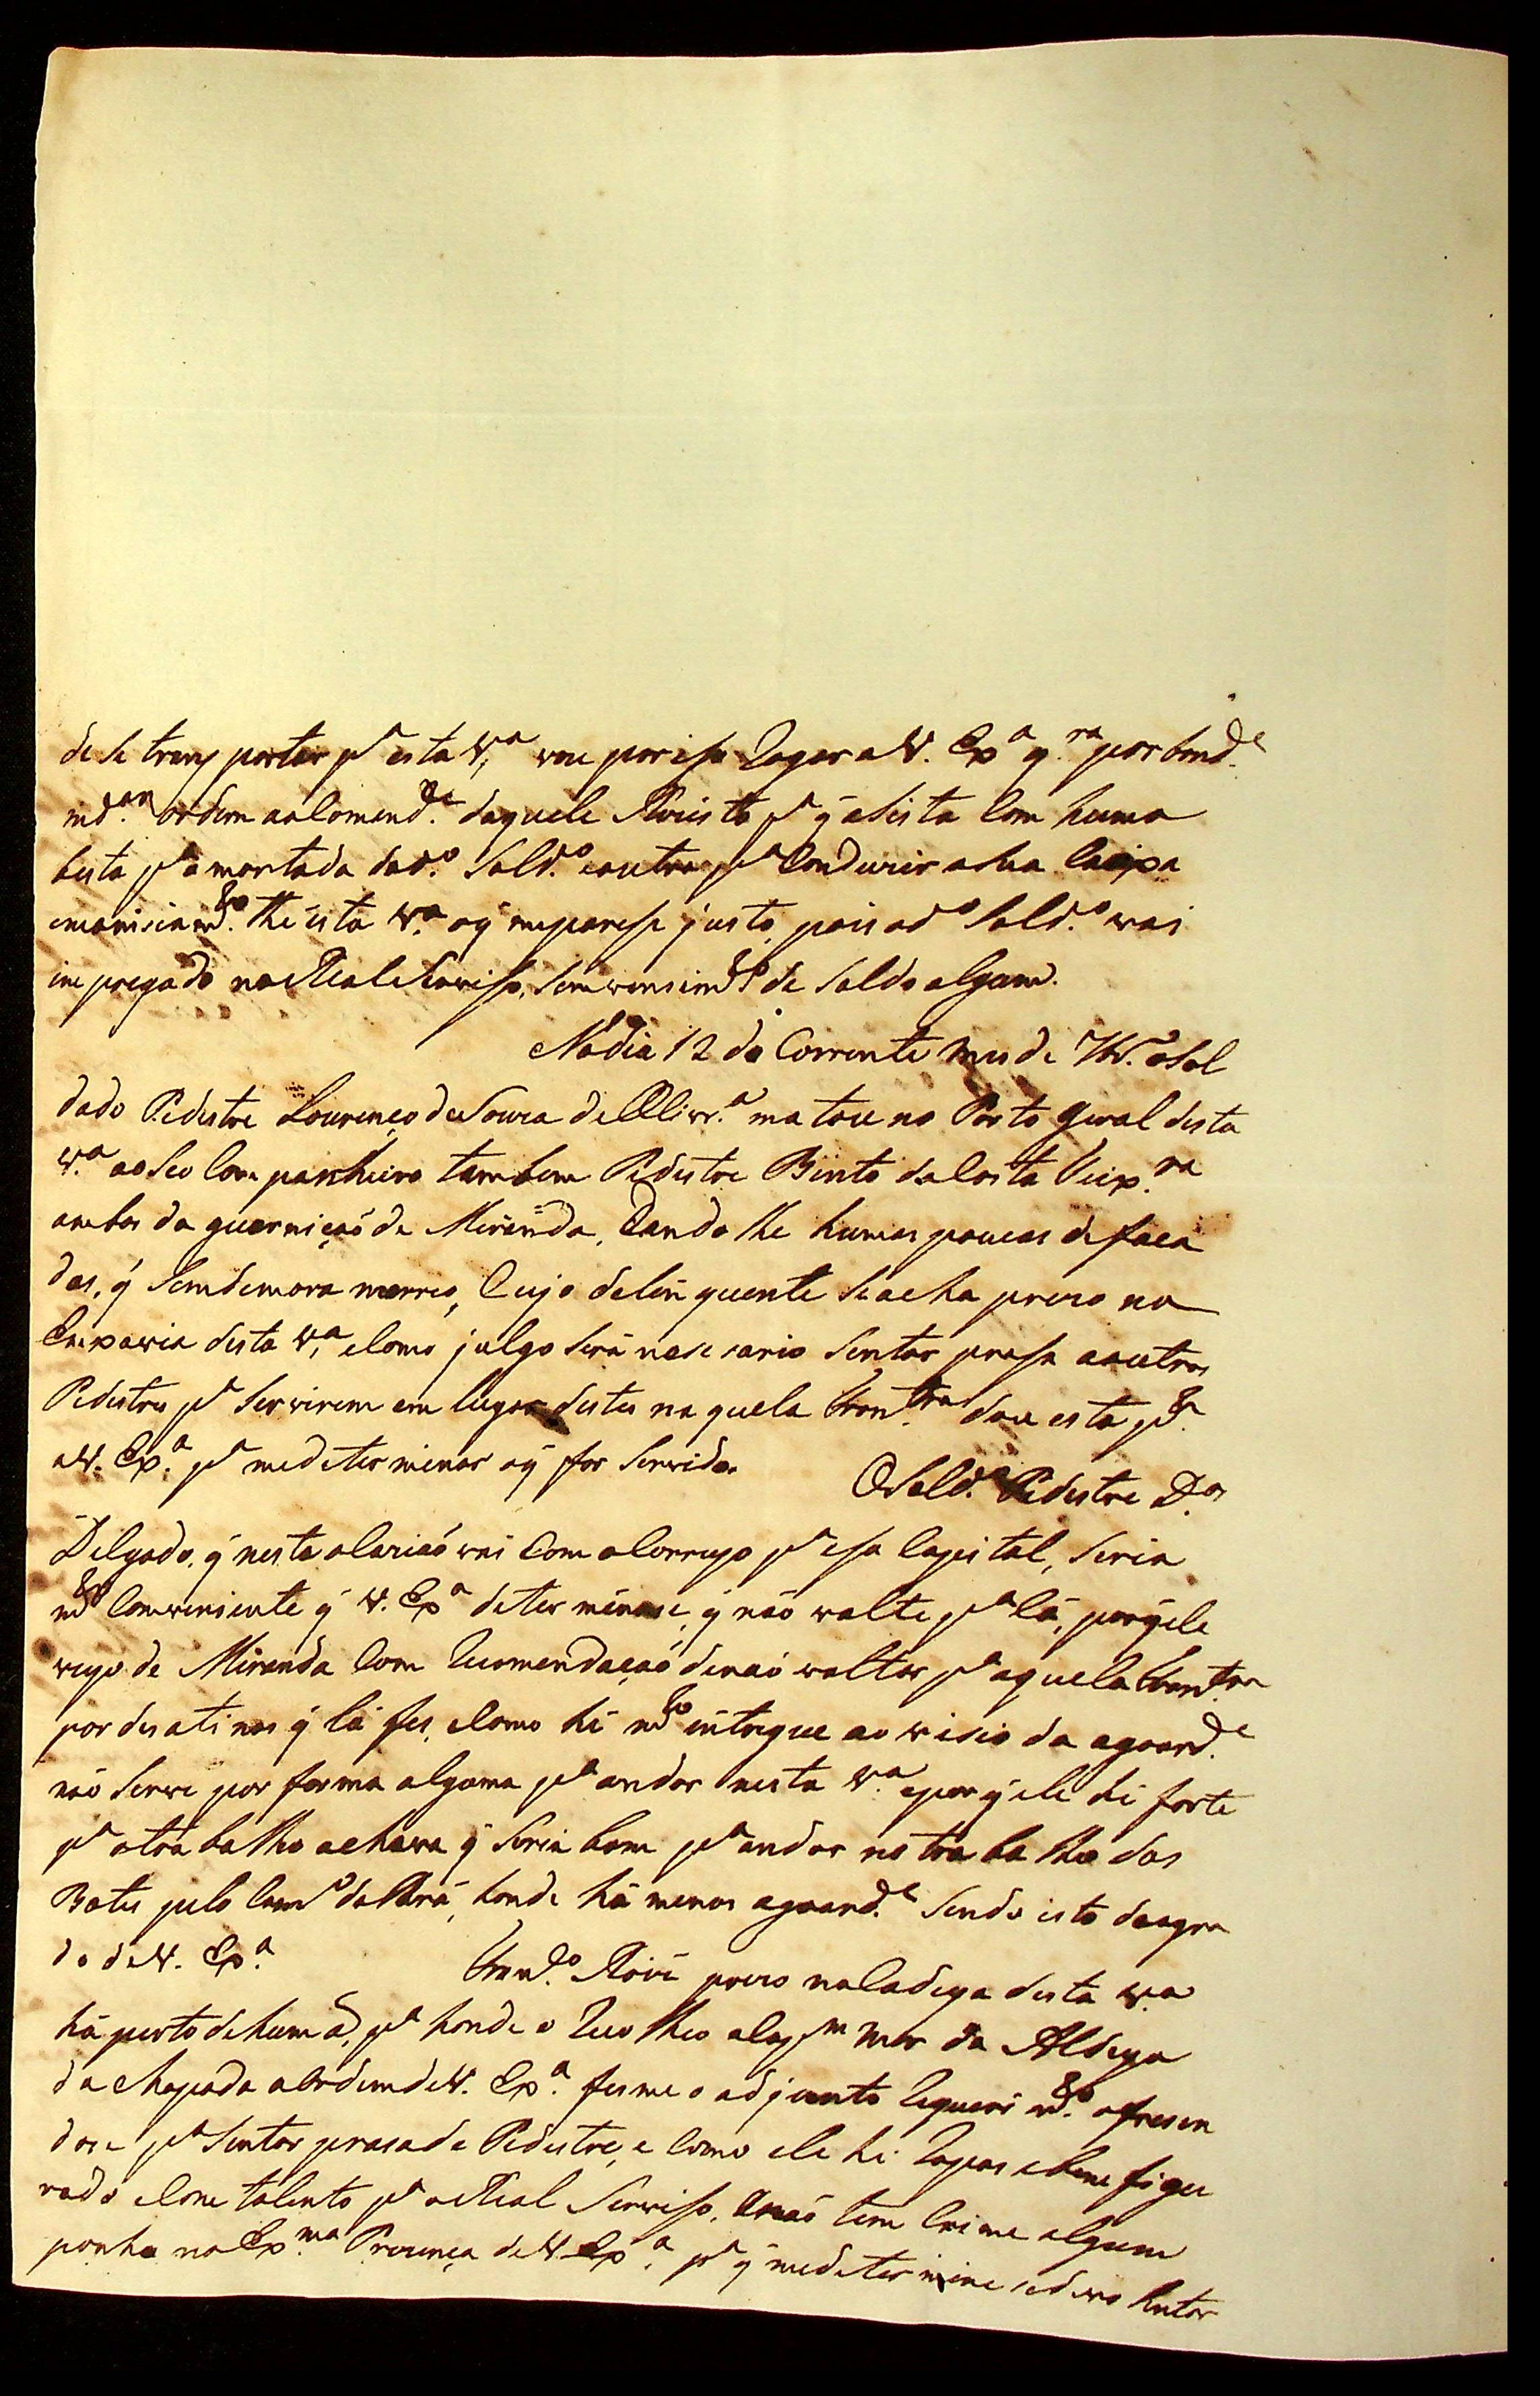 de se transportar pᵃ esta Vᵃ, vou por iso Rogar a V. Exᵃ q.ʳᵃ por bond.ᵉ
md.ᵃʳ ordem ao Comend.ᵗᵉ daquele Prezº pᵃ q̃ asista Com huma
besta pᵃ a montada do dº Sold.º e outra pᵃ Conduzir a sua Caixa
e manisiam.ᵗᵒ the esta Vᵃ o q̃ me parese justo, pois o dº Sold.º vai
impregado no Real Servisso, sem vensim.ᵗᵒ de Soldo algum.
No dia 12 do Corrente mes de 9br.º o Sol
dado Pedestre Lourenço de Souza de Olivr.ᵃ matou no Porto Geral desta
V.ᵃ ao Seo Companheiro tambem Pedestre Bento da Costa Teix.ʳᵃ
ambos da guarnição de Miranda, Dando lhe humas poucas de faca
das, q̃ Sem demora morreo, Cujo delinquente se acha prezo na
Enxovia desta Vᵃ, e Como julgo Será nesesario Sentar prasa a outros
Pedestres pᵃ Servirem em lugar destes naquela Front.ʳᵃ dou esta p.ᵗᵉ
a V. Exᵃ pᵃ me determinar o q̃ for Servido.
O Sold.º Pedestre D.ᵒˢ
Delgado, q̃ nesta ocazião vai Com o Correyo pᵃ esa Capital, Seria
m.ᵗᵒ Conveniente q̃ V. Exᵃ determinase, q̃ não volte pᵃ lá, por q̃ ele
veyo de Miranda Com Recomendação de não voltar pᵃ aquela Front.ʳᵃ
por desatinos q̃ lá fes, e Como hé m.ᵗᵒ entregue ao visio da agoard.ᵉ
não Serve por forma alguma pᵃ andar nesta V.ᵃ e por q̃ ele hé forte
pᵃ o trabalho achava q̃ Seria bom pᵃ andar no trabalho dos
Botes pelo Cam.º do Pará, honde há menos agoard.ᵉ Sendo isto do agra
do de V. Exᵃ
Fran.ᶜᵒ prezo na Cadeya desta V.ᵃ
há perto de hum , pᵃ honde o Recolheo o Cap.ᵐ mor da Aldeya
da Chapada a Ordem de V. Exᵃ fes me o adjunto Requeri m.ᵗᵒ ofresen
dose pᵃ Sentar prasa de Pedestre, e Como ele hé Rapas e bem figu
rado e Com talento pᵃ o Real Serviso, e não tem Crime algum
ponho na Ex.ᵐᵃ Prezença de V. Exᵃ pᵃ q̃ me determine se devo Sentar